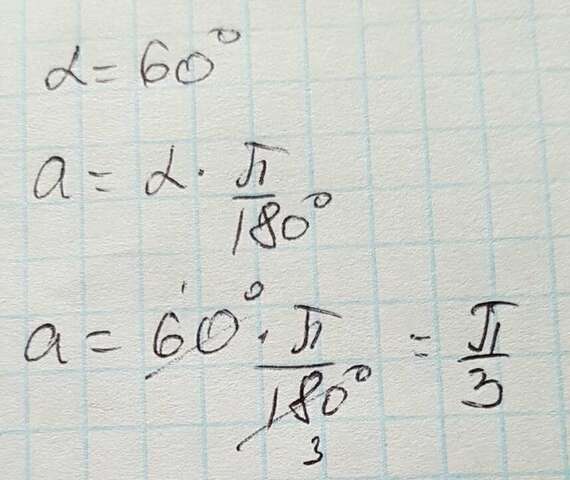 α = 60°
a = α · π/180°
a = 60° · π/180° = π/3
1
3